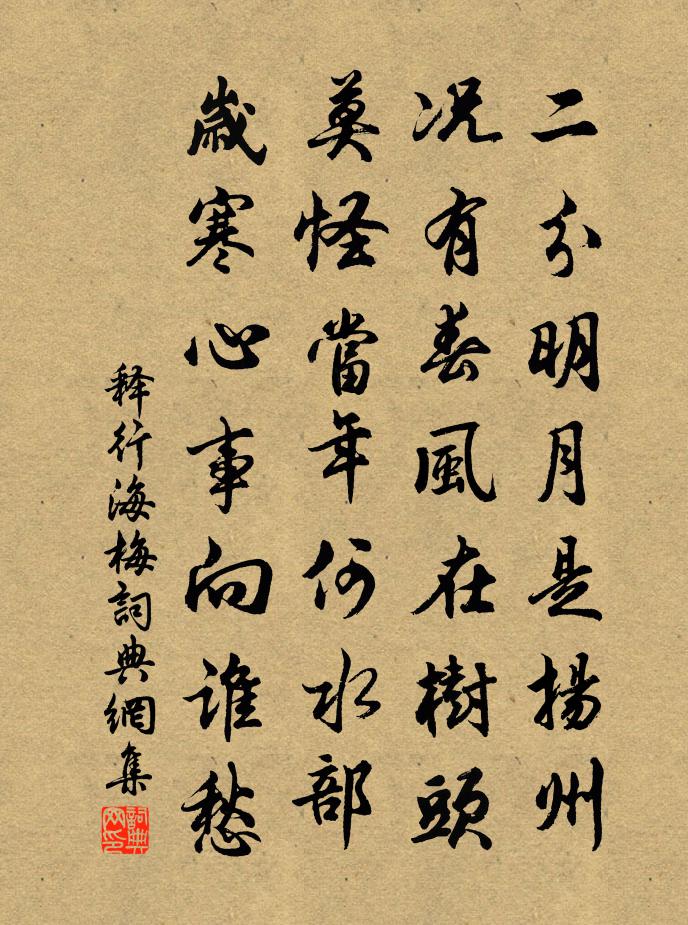 二分明月是揚州
況有春風在樹頭
莫怪當年何水部
歲寒心事向誰愁
释行海梅詞典網集
詞典网印